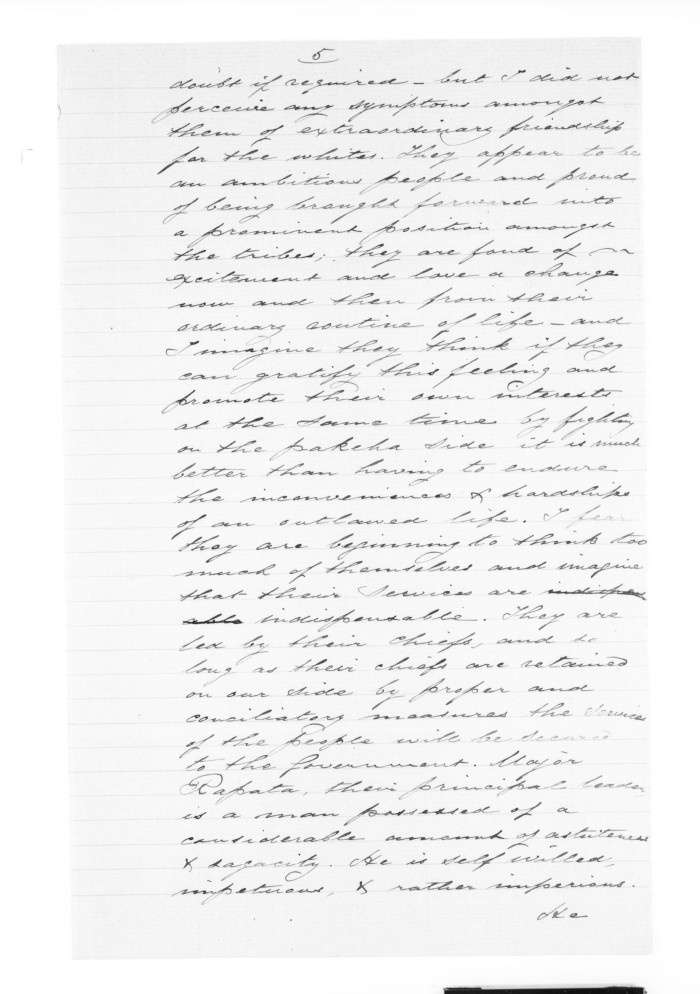 5
doubt if required - but I did not
perceive any symptoms amongst
them of extraordinary friendship
for the whites. They appear to be
an ambitious people and proud
of being brought forward into
a prominent position amongst
the tribes; they are fond of
excitement and love a change
now and then from their
ordinary routine of life - and
I imagine they think if they
can gratify this feeling and
promote their own interests
at the same time by fighting
on the pakeha side it is much
better than having to endure
the inconveniences & hardships
of an outlawed life. I fear
they are beginning to think too
much of themselves and imagine
that their services are indispens
able indispensable. They are
led by their chiefs, and so
long as their chiefs are retained
on our side by proper and
conciliatory measures the services
of the People will be secured
to the Government. Major
Rapata, their principal leader
is a man possessed of a
considerable amount of astuteness
& sagacity. He is self willed,
impetuous, & rather imperious.
He